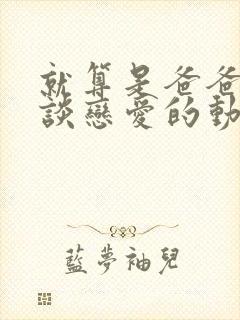 就算是爸爸
談戀愛的動
藍夢袖兒